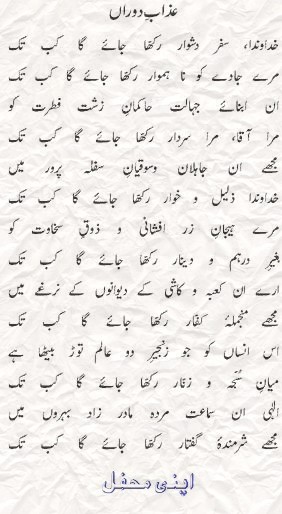 عذابِ دوراں
خداوندا، سفر دشوار رکھا جائے گا کب تک
مرے جادے کو نا ہموار رکھا جائے گا کب تک
ان ابنائے جہالت حاکمانِ زشت فطرت کو
مرا آقا، مرا سردار رکھا جائے گا کب تک
مجھے ان جاہلان وسوقیانِ سفلہ پرور میں
خداوندا ذلیل و خوار رکھا جائے گا کب تک
مرے ہیجانِ زر افشانی و ذوقِ سخاوت کو
بغیرِ درہم و دینار رکھا جائے گا کب تک
ارے ان کعبہ و کاشی کے دیوانوں کے نرغے میں
مجھے منجملۂ کفار رکھا جائے گا کب تک
اس انساں کو جو زنجیرِ دو عالم توڑ بیٹھا ہے
میانِ سُبحہ و زنار رکھا جائے گا کب تک
الٰہی ان سماعت مردہ مادر زاد بہروں میں
مجھے شرمندۂ گفتار رکھا جائے گا کب تک
اپنی محفل